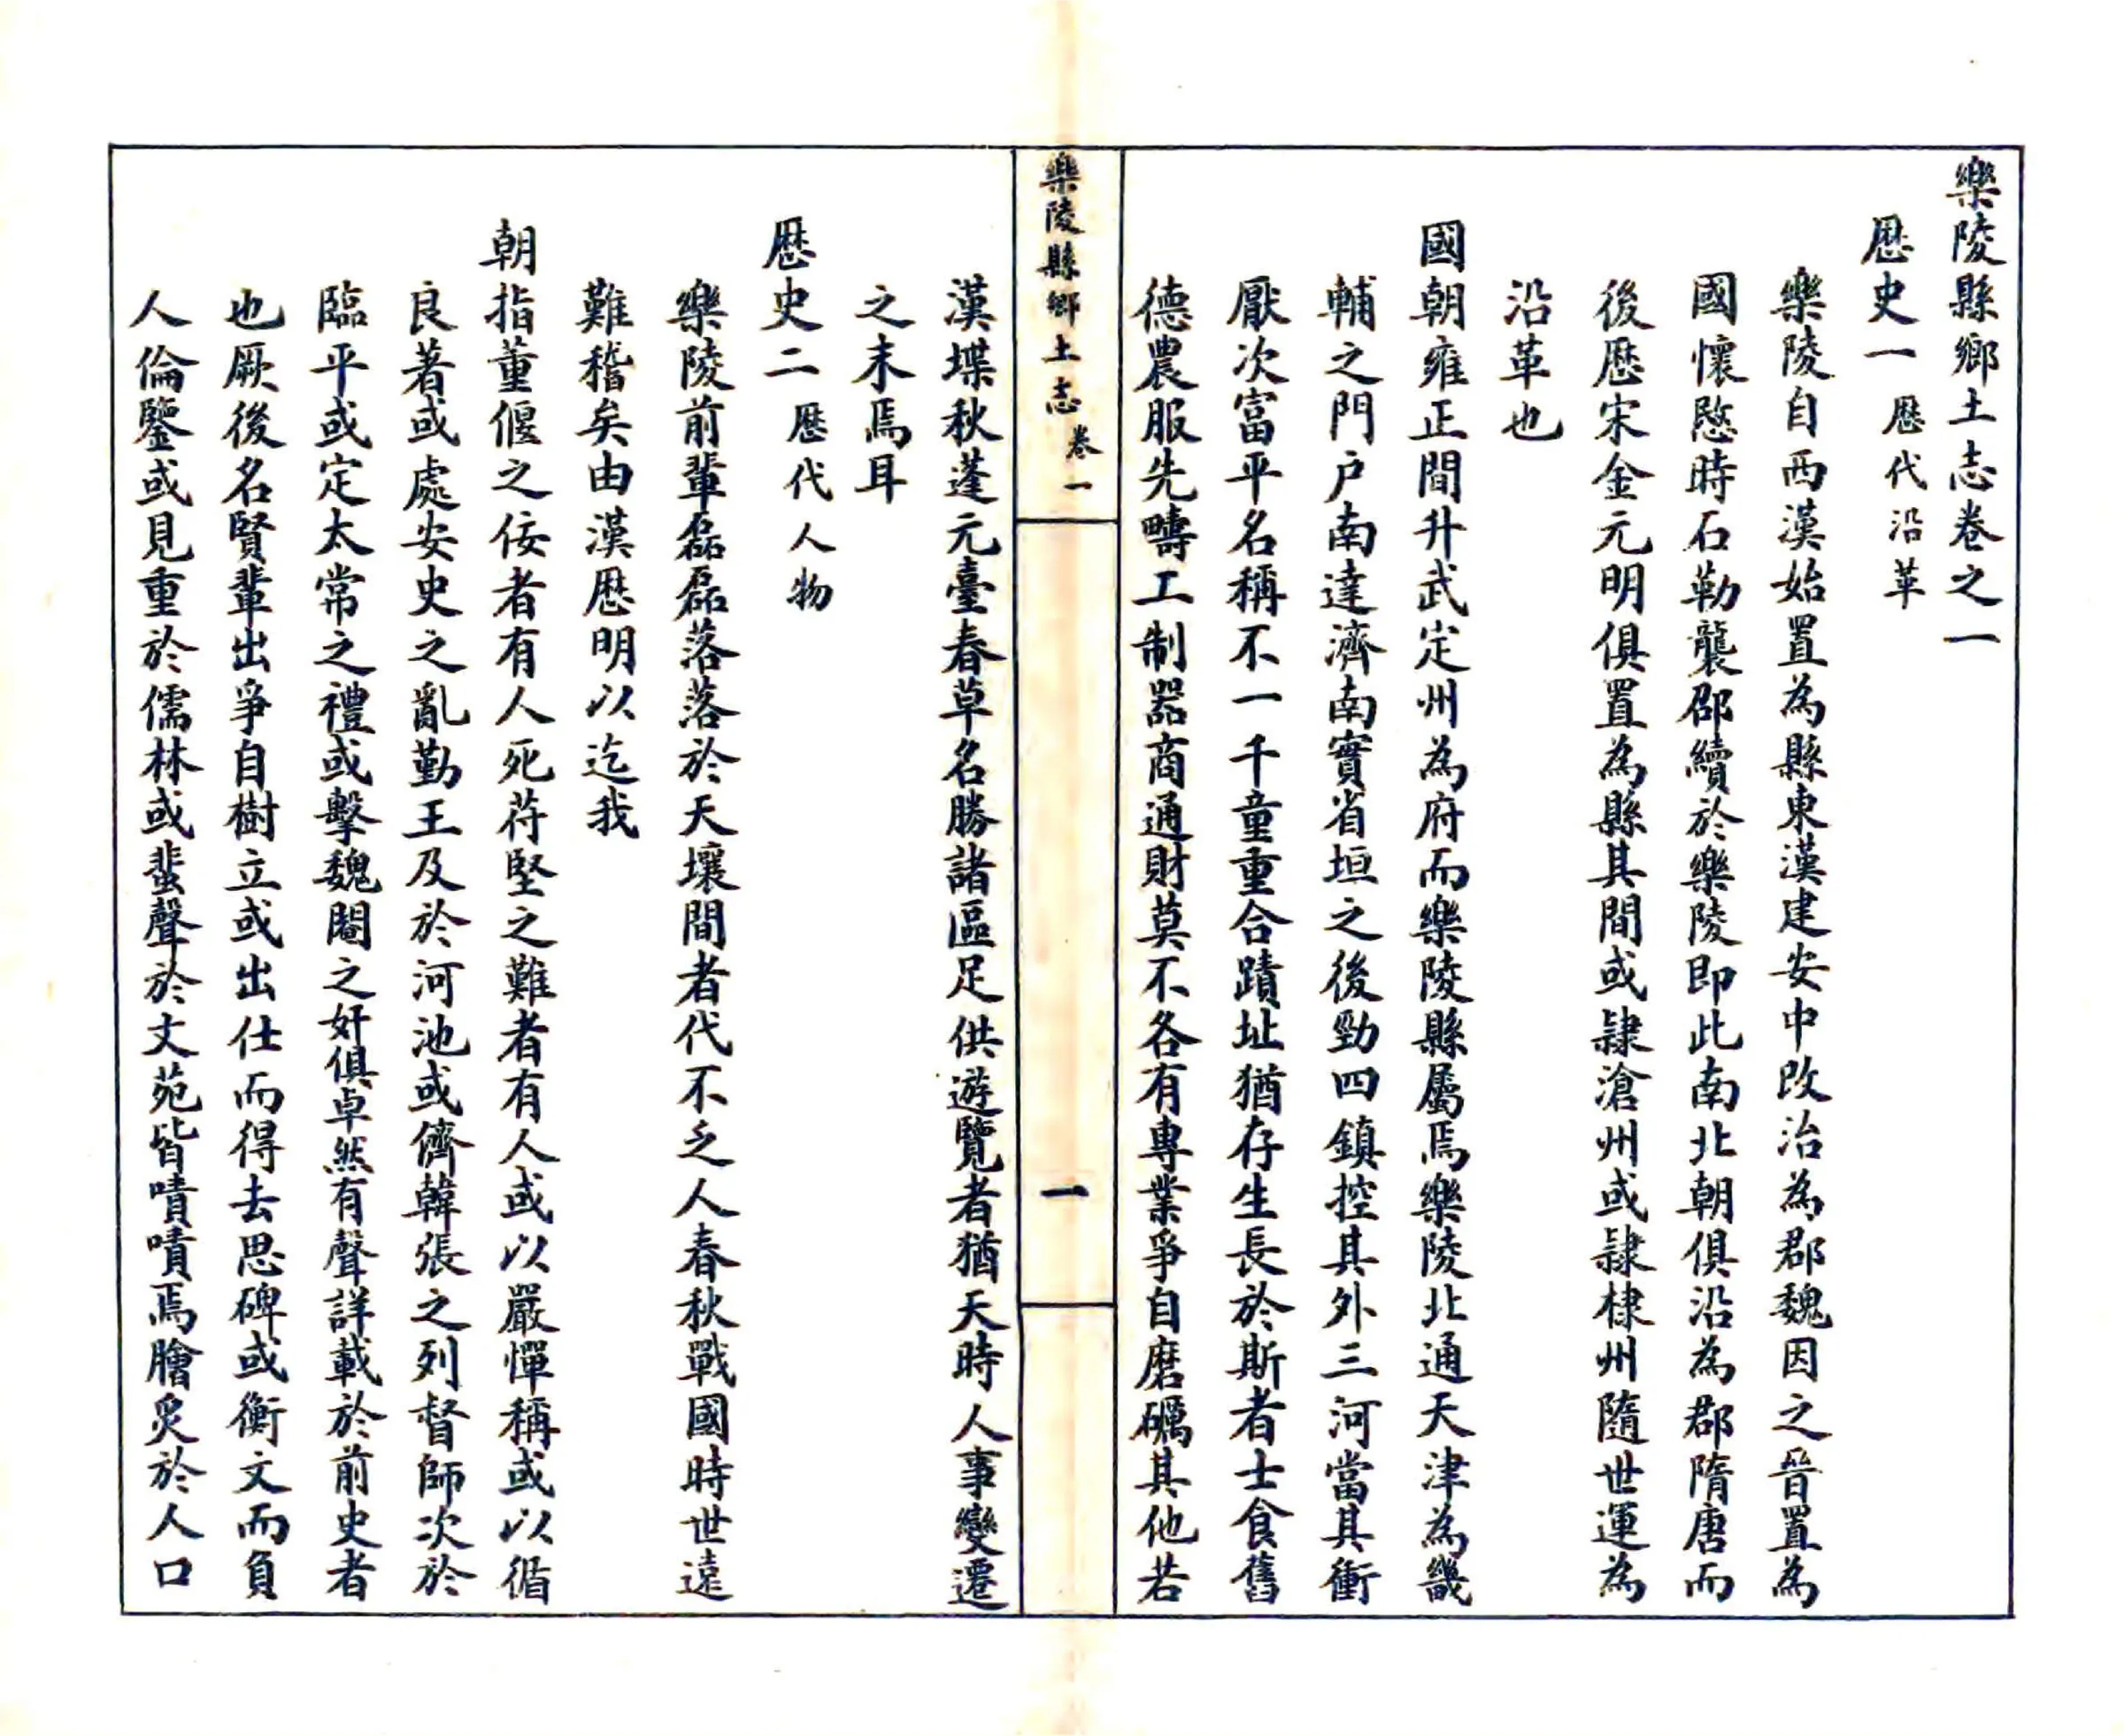 樂陵縣鄉土志卷之一
歷史一 歷代沿革
樂陵自西漢始置為縣東漢建安中改治為郡魏因之晉置為
國懷愍時石勒襲邵續於樂陵即此南北朝俱沿為郡隋唐而
後歷宋金元明俱置為縣其間或隷滄州或隷棣州隨世運為
沿革也
國朝雍正間升武定州為府而樂陵縣屬焉樂陵北通天津為畿
輔之門户南達濟南實省垣之後勁四鎮控其外三河當其衝
厭次富平名稱不一千童重合蹟址猶存生長於斯者士食舊
德農服先疇工制器商通財莫不各有專業爭自磨礪其他若
樂陵縣鄉土志 卷一
一
漢堞秋蓬元臺春草名勝諸區足供遊覽者猶天時人事變遷
之末焉耳
歷史二 歷代人物
樂陵前輩磊磊落落於天壤間者代不乏人春秋戰國時世遠
難稽矣由漢歷明以迄我
朝指董偃之佞者有人死苻堅之難者有人或以嚴憚稱或以循
良著或處安史之亂勤王及於河池或儕韓張之列督師次於
臨平或定太常之禮或擊魏閹之奸俱卓然有聲詳載於前史者
也厥後名賢輩出爭自樹立或出仕而得去思碑或衡文而負
人倫鑒或見重於儒林或蜚聲於文苑皆嘖嘖焉膾炙於人口